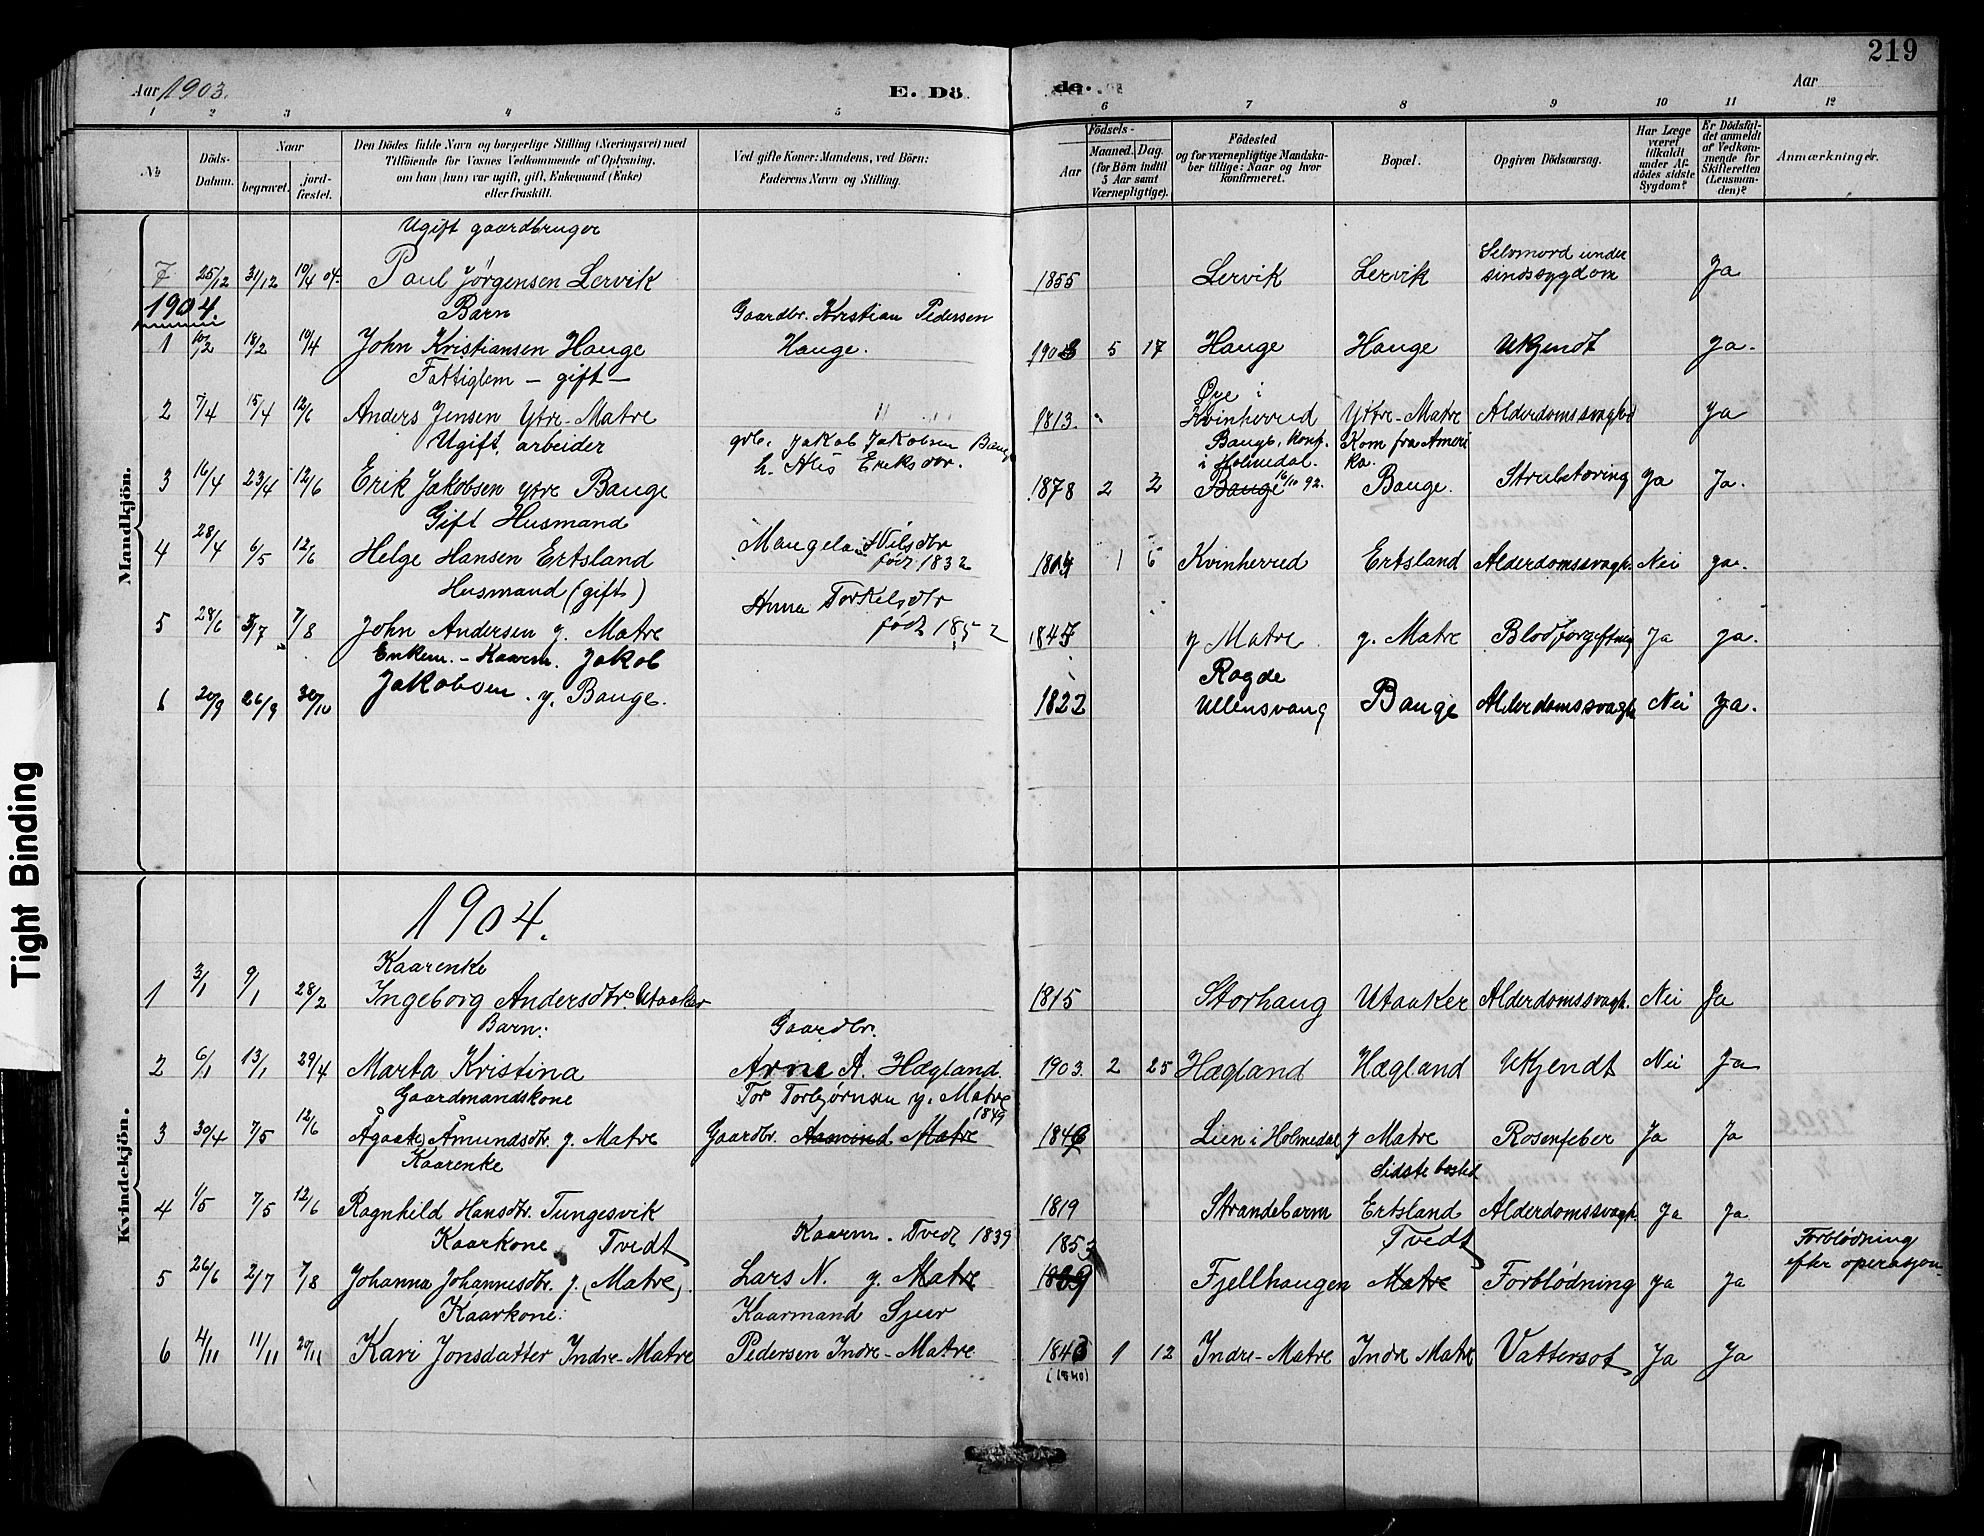 219
Aar 1903.
E. Dö
de.
Aar
1 2 3 4 5 6 7 8 9 10 11 12
No
Döds-Datum.
Naar
begravet.
jord-fæstet.
Den Dödes fulde Navn og borgerlige Stilling (Næringsvei) med
Tilföiende for Voxnes Vedkommende af Oplysning,
om han (hun) var ugift, gift, Enkemand (Enke)
eller fraskilt.
Ved gifte Koner: Mandens, ved Börn:
Faderens Navn og Stilling.
Födsels-
Aar
Maaned. Dag.
(for Börn indtil
5 Aar samt
Værnepligtige).
Födested
og for værnepligtige Mandska-
ber tillige: Naar og hvor
konfirmeret.
Bopæl.
Opgiven Dödsaarsag.
Har Læge
været
tilkaldt
under Af-
dödes sidste
Sygdom?
Er Dödsfal-
det anmeldt
af Vedkom-
mende for
Skifteretten
(Lensman-
den)?
Anmærkninger.
Mandkjön.
Ugift gaardbruger
7 25/12 31/12 10/4 04. Paul Jørgensen Lervik 1855 Lervik Lervik Selvmord under sindssygdom Ja
1904.
Barn Gaardbr. Kristian Pedersen
1 10/2 18/2 10/4 John Kristiansen Hauge Hauge. 1903 5 17 Hauge Hauge Ukjendt Ja.
Fattiglem - gift - Øye i
2 7/4 15/4 12/6 Anders Jensen Ytre-Matre " " 1813. Kvinherred Yttre-Matre Alderdomssvaghed Ja
Ugift, arbeider gbr. Jakob Jakobsen Bauge Bauge, konf. Kom fra Ameri
h. Alis Eriksdtr. i Holmedal. ka.
3 16/4 23/4 12/6 Erik Jakobsen ytre Bauge 1878 2 2 Bauge 16/10 92. Bauge. Strubetæring Ja Ja.
Gift Husmand
4 28/4 6/5 12/6 Helge Hansen Ertsland Mangela Nilsdtr født 1832 1 6 Kvinherred Ertsland Alderdomssvagh. Nei ja.
Husmand (gift) Anna Torkelsdtr
5 28/6 3/7 7/8 John Andersen y. Matre født 1852 1847 y Matre y. Matre Blodforgiftning Ja ja.
Enkem. - Kaarm. Jakob Ragde
6 20/9 26/9 30/10 Jakobsen. y. Bauge. 1822 Ullensvang Bauge Alderdomssvagh Nei ja.
Kvindekjön.
1904.
Kaarenke
1 3/1 9/1 28/2 Ingeborg Andersdtr. Utaaker 1815 Storhaug Utaaker Alderdomssvagh. Nei Ja
Barn: Gaardbr.
2 6/1 13/1 29/4 Marta Kristina Arne A. Hægland 1903. 2 25 Hægland Hægland Ukjendt Nei Ja
Gaardmandskone Tor Torbjørnsen y. Matre 1849
3 30/4 7/5 12/6 Ågaate Åmundsdtr. y. Matre Gaardbr. Aamund Matre 1846 Lien i Holmedal y Matre Rosenfeber Ja Ja
Kaarenke Sidste bosted
4 1/5 7/5 12/6 Ragnhild Hansdtr. Tungesvik 1819 Strandebarm Ertsland Alderdomssvagh Ja Ja
Kaarkone Tvedt Kaarm. Tvedt 1839 1853 Tvedt Forblødning
5 26/6 2/7 7/8 Johanna Johannesdtr. y. (Matre). Lars N. y. Matre Fjellhaugen Matre Forblødning Ja Ja efter operasjon
Kaarkone: Kaarmand Sjur
6 4/11 11/11 20/11 Kari Jonsdatter Indre-Matre Pedersen Indre-Matre 1843 1 12 Indre-Matre Indre Matre Vattersot Ja Ja
(1840)
Tight Binding